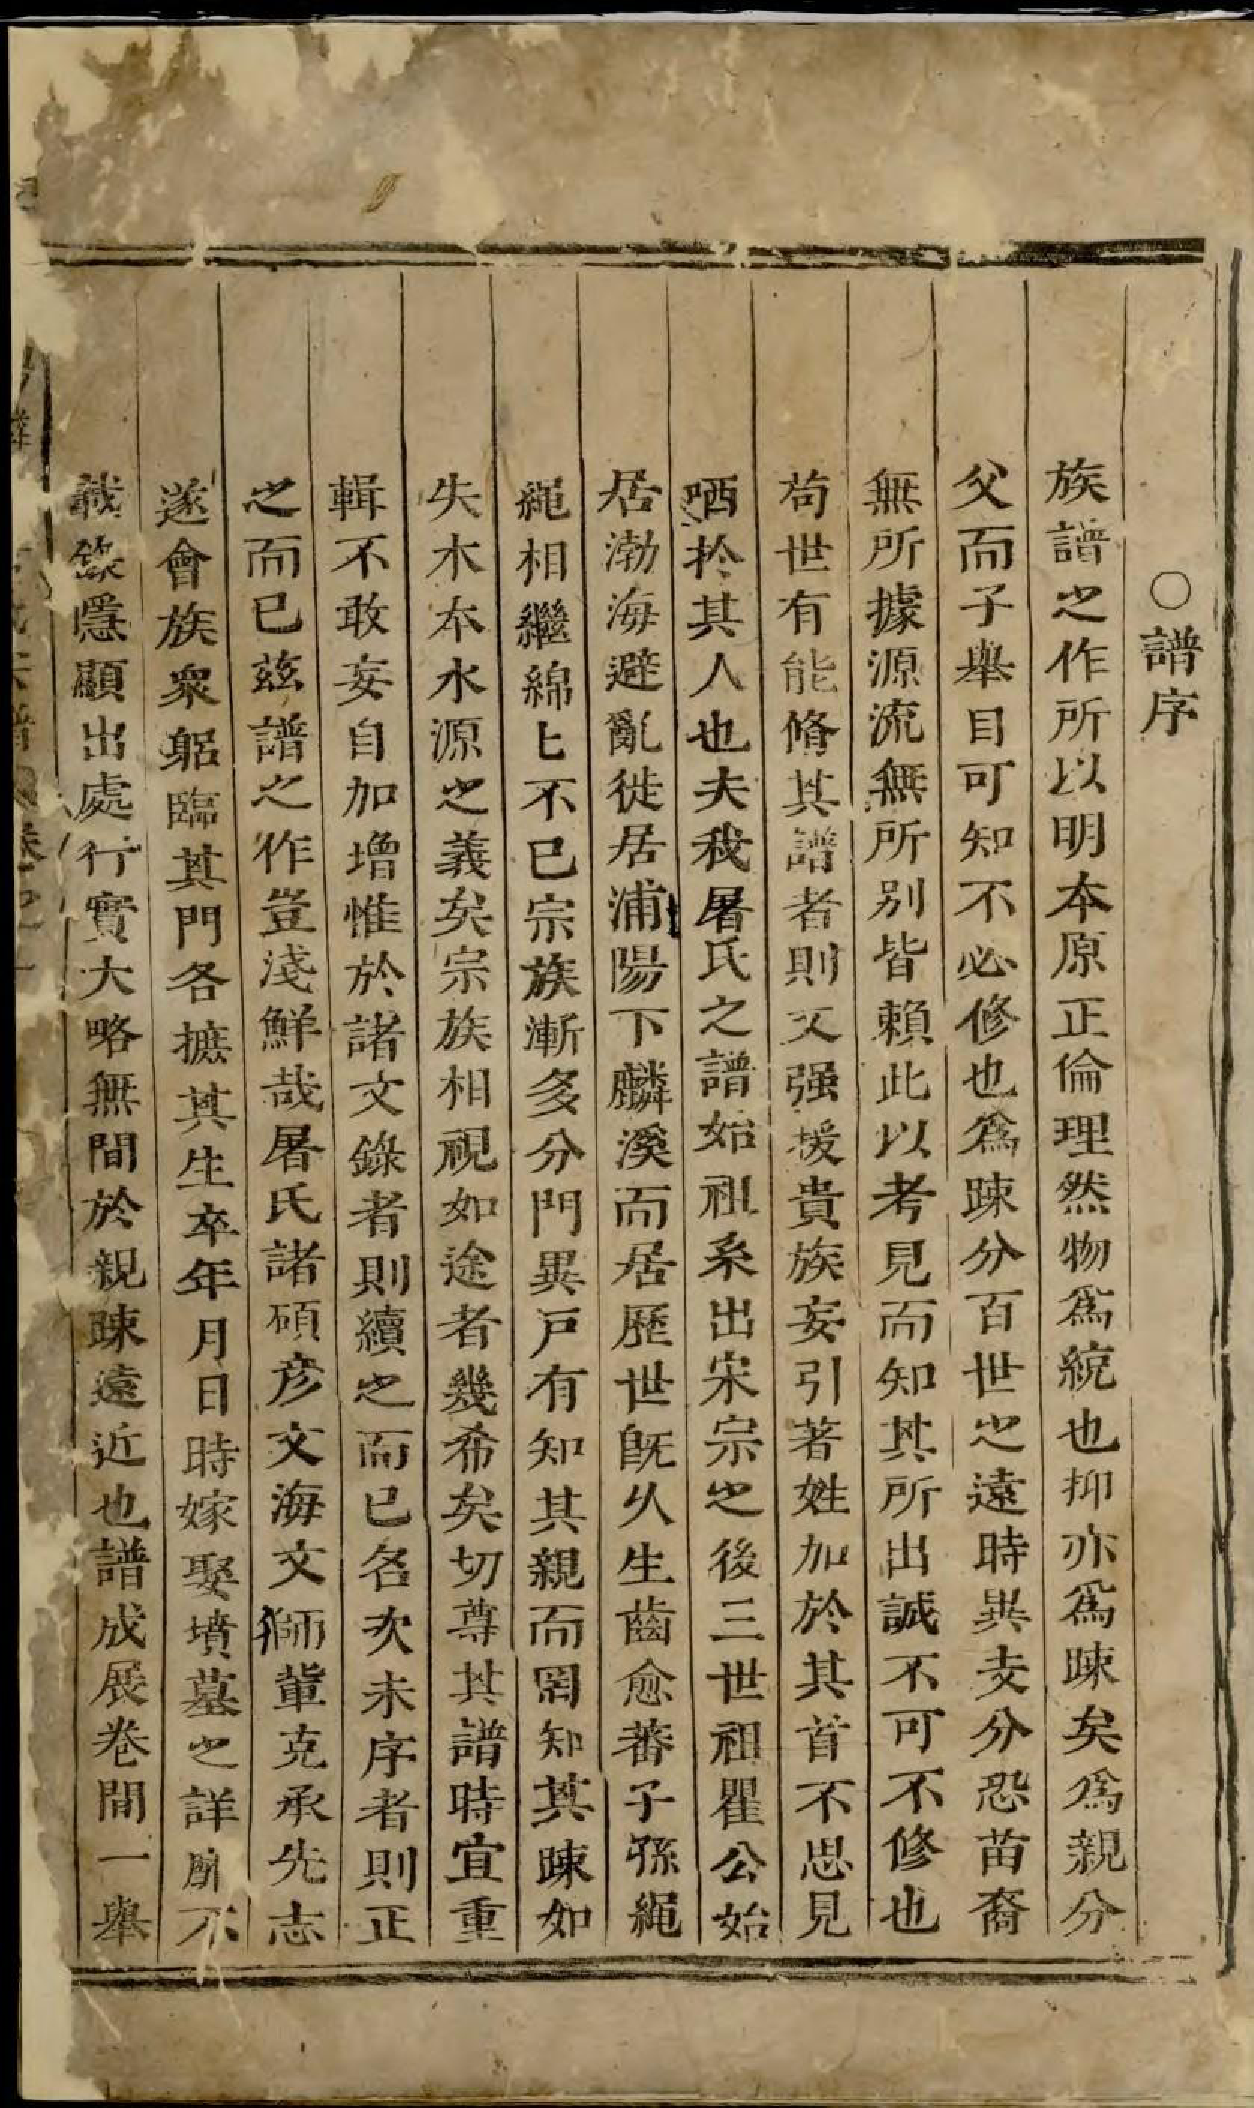 ○譜序
族譜之作所以明本原正倫理然物爲統也抑亦爲踈矣爲親分
父而子舉目可知不必修也爲踈分百世之遠時異支分恐苗裔
無所據源流無所别皆賴此以考見而知其所出誠不可不修也
苟世有能脩其譜者則又强援貴族妄引著姓加於其首不思見
哂扵其人也夫我屠氏之譜始祖系出宋宗之後三世祖瞿公始
居渤海避亂徙居浦陽下麟溪而居歷世既久生齒愈蕃子孫繩
繩相繼綿匕不已宗族漸多分門異戸有知其親而罔知其踈如
失木本水源之義矣宗族相視如途者幾希矣切尊其譜時宜重
輯不敢妄自加增惟於諸文錄者則續之而已名次未序者則正
之而已兹譜之作豈淺鮮哉屠氏諸碩彦文海文獅軰克承先志
遂會族衆躬臨其門各摭其生卒年月日時嫁娶墳墓之詳靡不
載錄隱顯出處行實大略無間於親踈遠近也譜成展卷間一舉